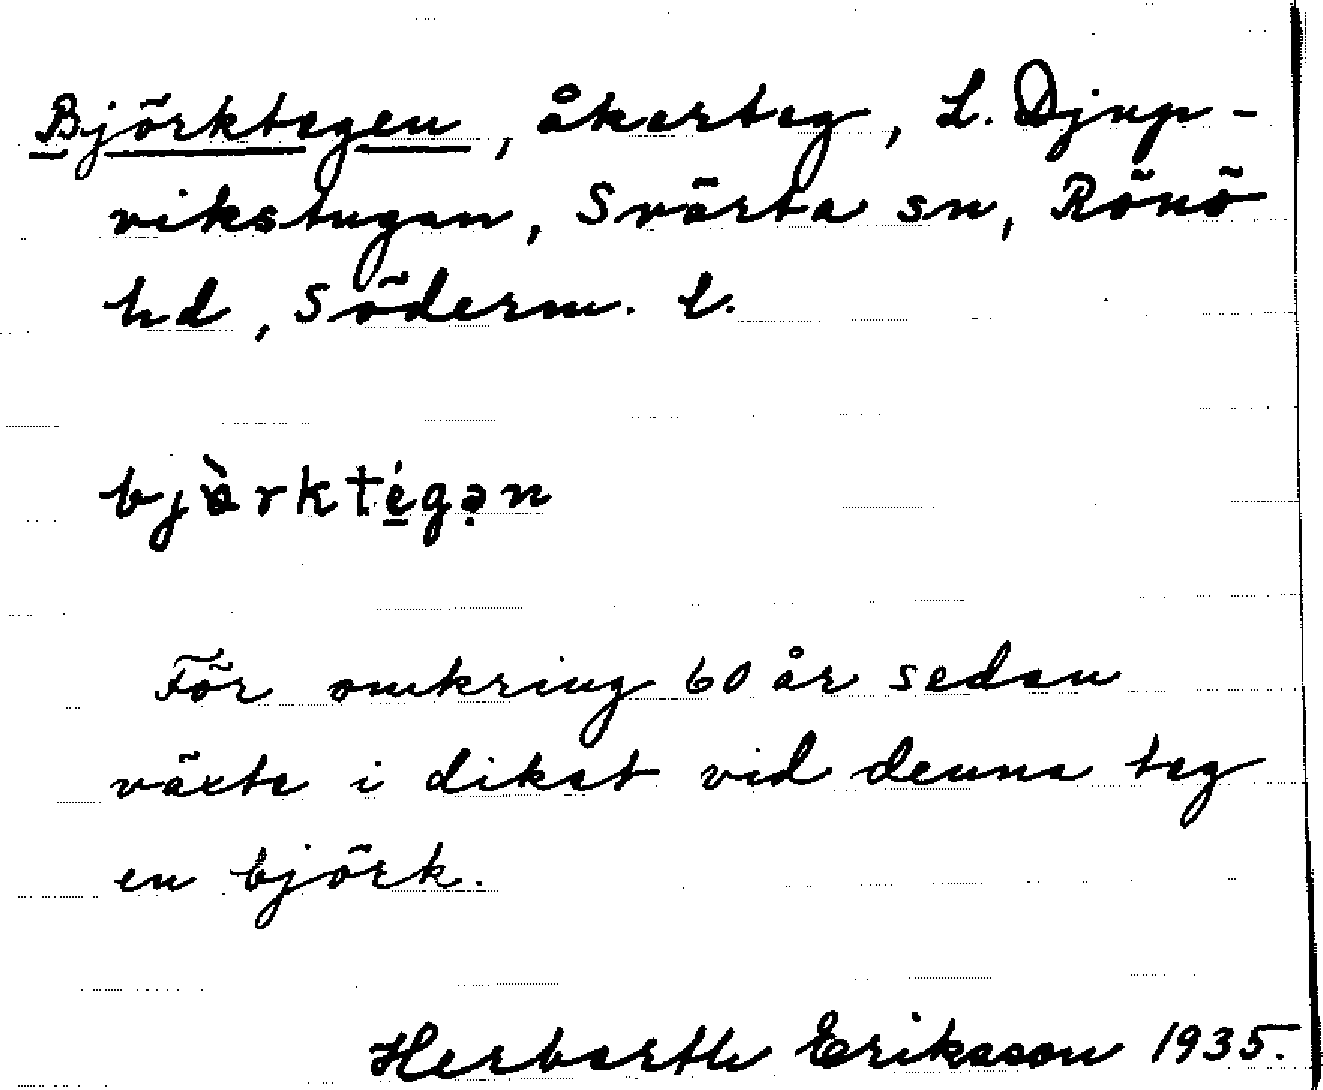 Björktegen, åkerteg, L. Djup-
vikstugan, Svärta sn, Rönö
hd, Söderm. l.
bjɵ̀rktég̲ə̣n
För omkring 60 år sedan
växte i diket vid denna teg
en björk.
Herbarth Erikason 1935.